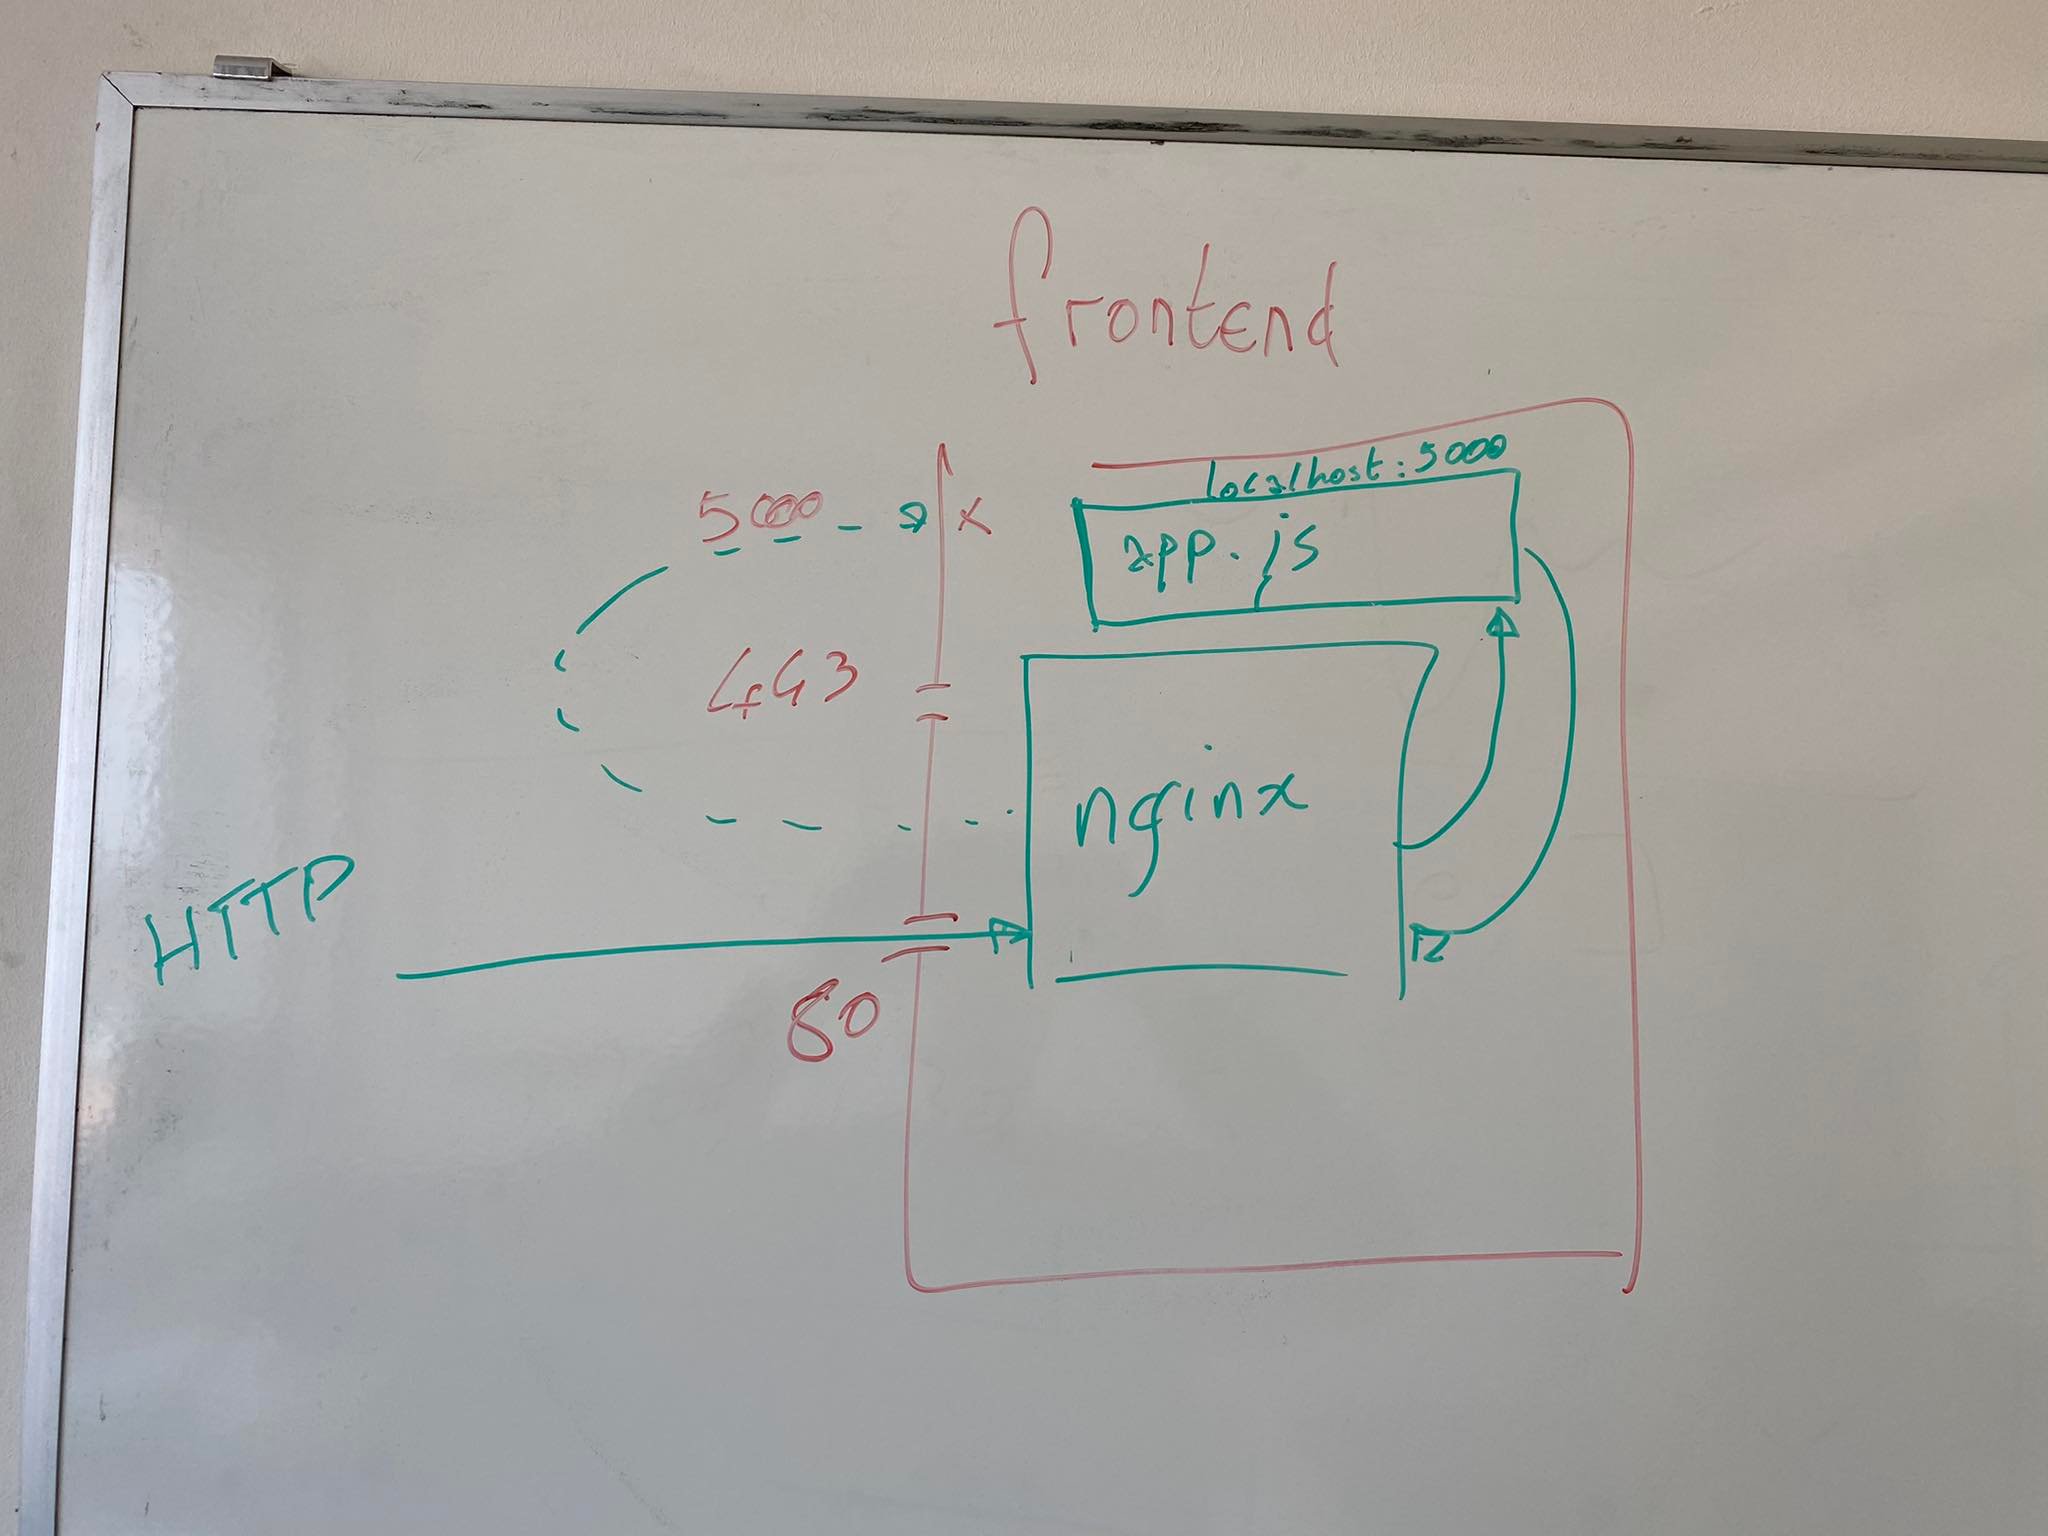 frontend
localhost:5000
5000 x
app.js
443
nginx
HTTP
80